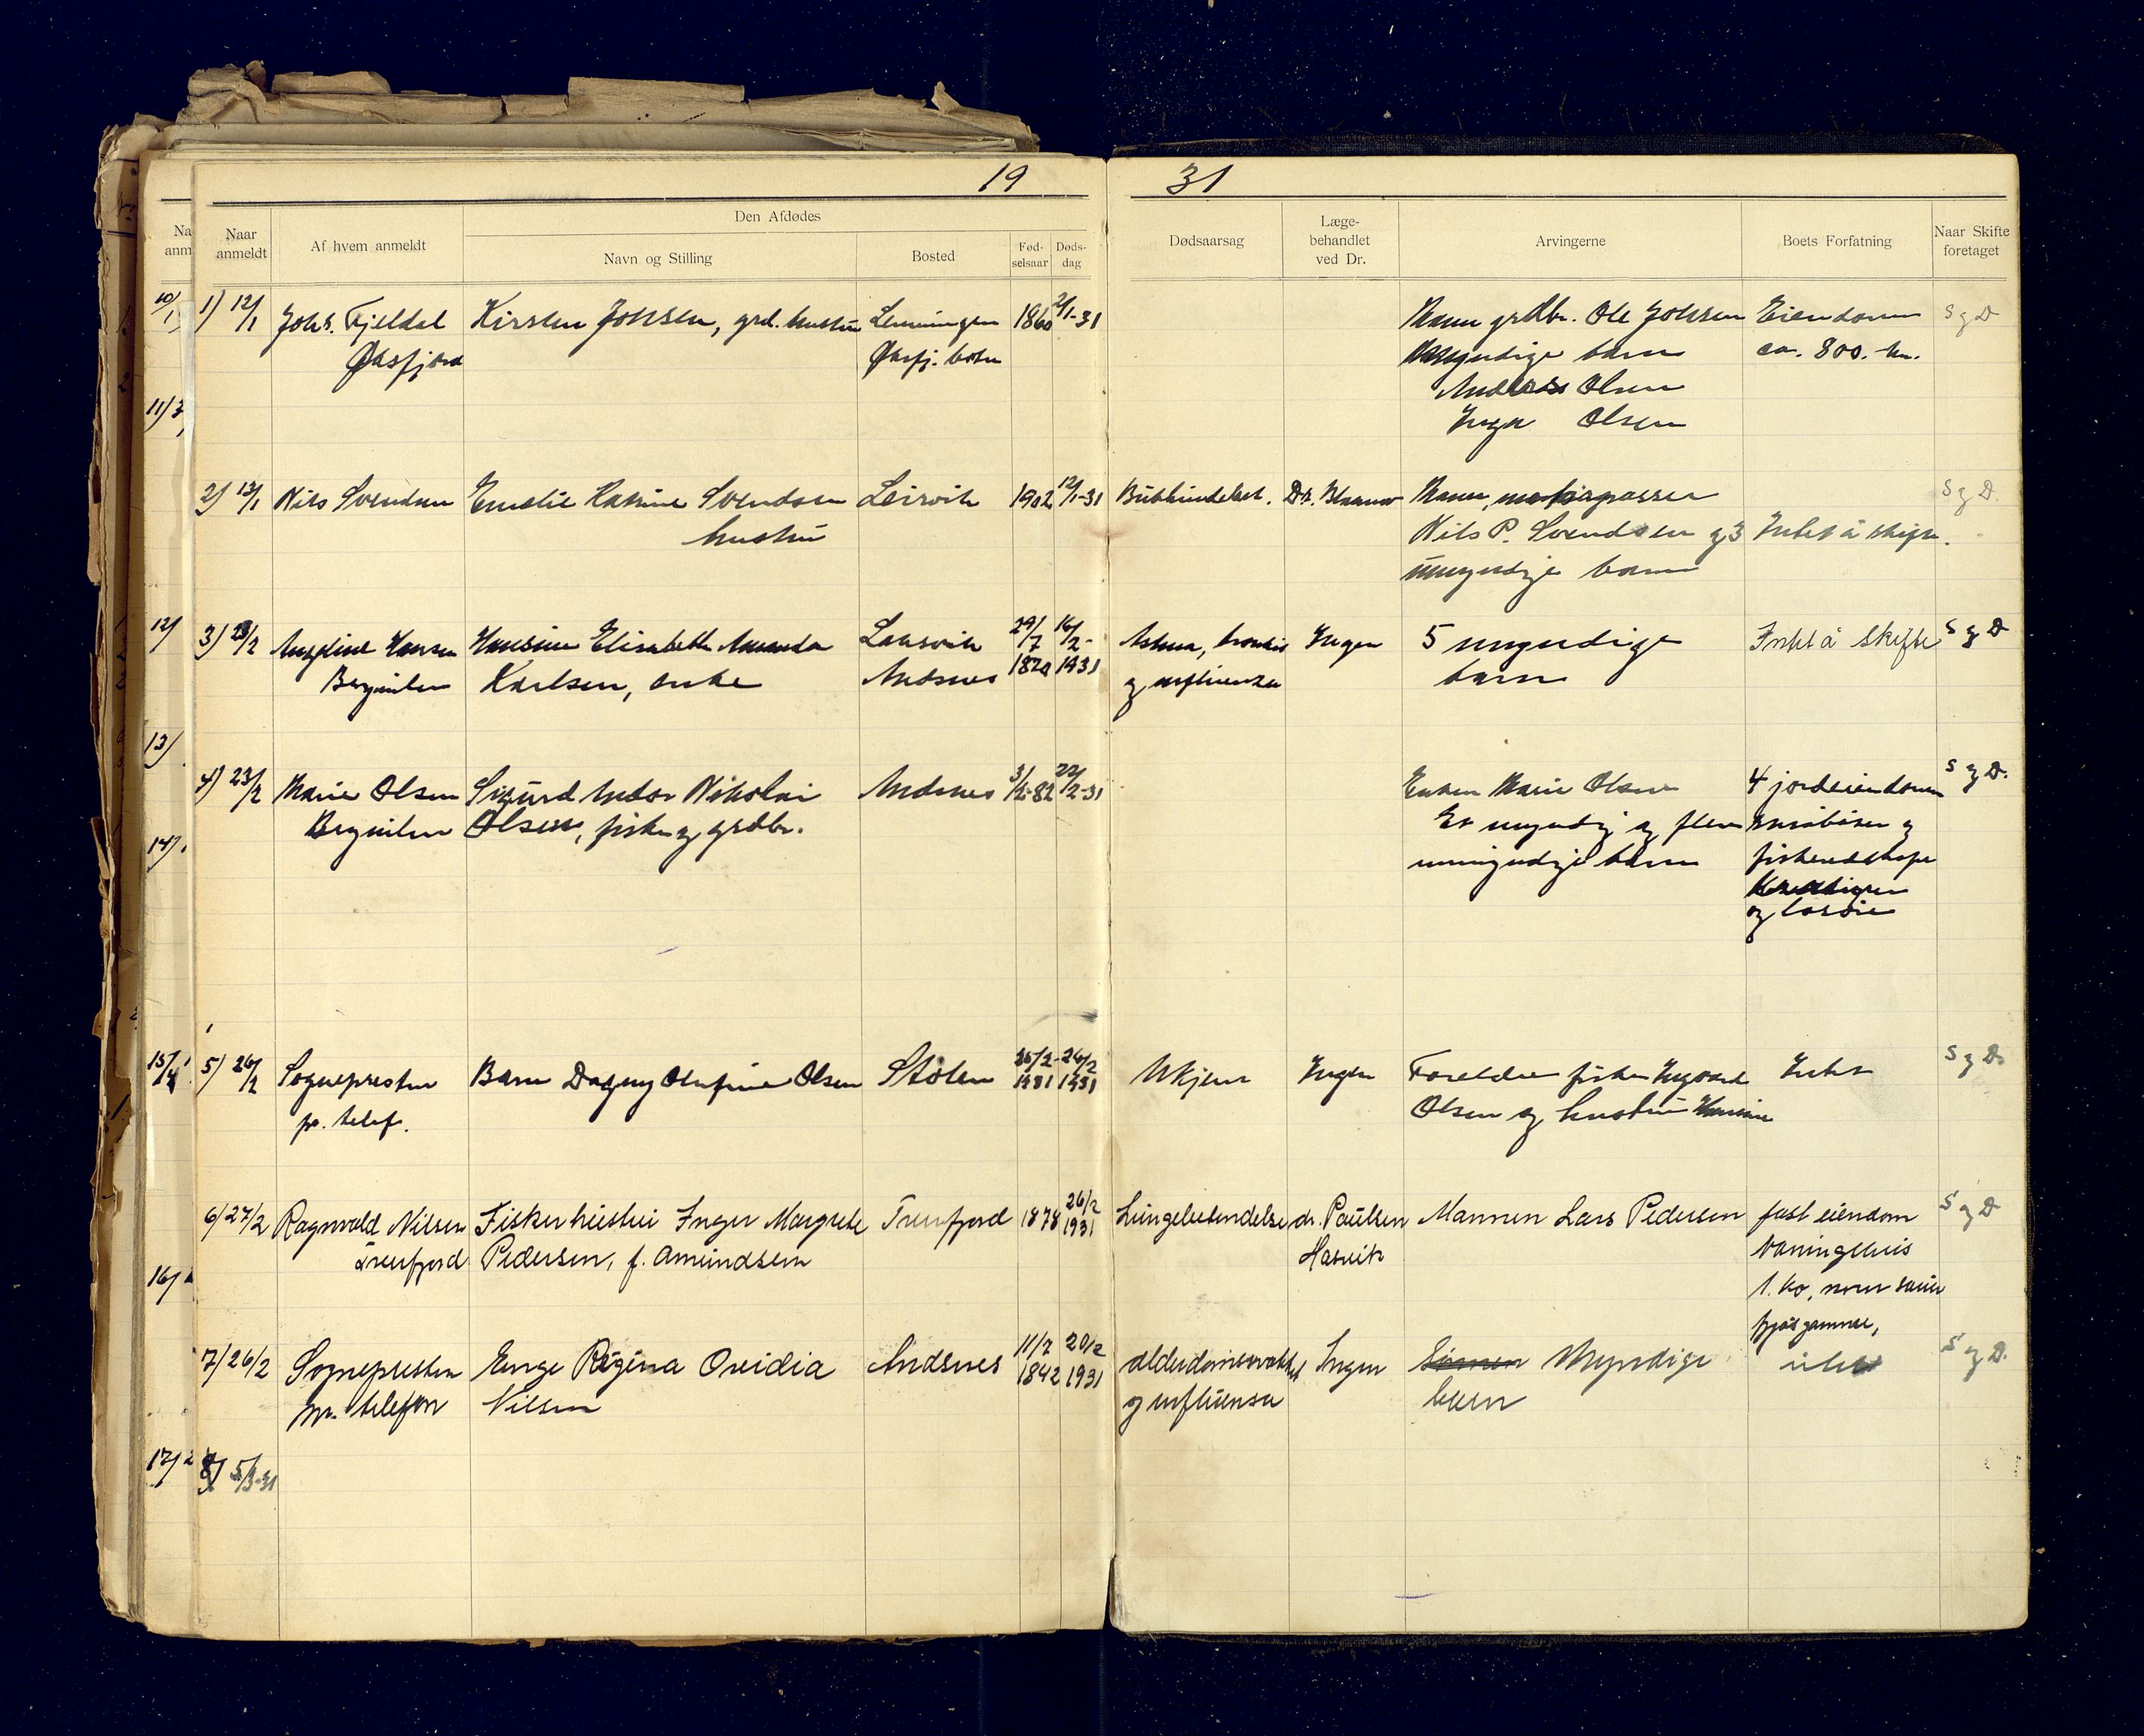 19 31
Naar anmeldt
Af hvem anmeldt
Den Afdødes
Navn og Stilling
Bosted
Fød-
selsaar
Døds-
dag
Dødsaarsag
Læge-
behandlet
ved Dr.
Arvingerne
Boets Forfatning
Naar Skifte
foretaget
Na
anm
10/1
11/3
12/
13/
14/
15/4
16/
17/2
1) 12/1 Johs. Fjeldal Kirsten Johsen, grd. hustru 1860 2/1-31 Mann grdbr. Ole Johsen Eiendom S og D
Øksfjord Øksfj. botn barn ca. 800. kr.
Olsen
Inga Olsen
2) 13/1 Nils Svendsen Emelie Svendsen Leirvik 1902 12/1-31 Dr. Mann, S og D.
hustru Nils P. Svendsen og 3 Intet å skifte.
umyndige barn
3) 23/2 Angeline Hansen Hansine Elisabeth Amanda Laksvik 29/7 16/2- Astma, Ingen 5 myndige Intet å skifte S og D
Karlsen, enke Andsnes 1931 og influenza barn
4) 23/2 Marie Olsen Sigurd Andor Nikolai Andsnes 3/2-82 22/2-31 Enken Marie Olsen 4 jordeiendom S og D.
Olsen, fisker og grdbr. En myndig og flere
umyndige barn fiskeredskaper
Kreaturer
og løsøre
5) 26/2 Sognepresten Barn Dagny Olufine Olsen Stølen 25/2- 26/2 Ukjent Ingen Foreldre fisker Ingvard Intet S og D
pr. telef. 1931 1931 Olsen og hustru Hansine
6/ 27/2 Ragnvald Nilsen Fisker hustru Inger Margrete Tverfjord 1878 26/2 Lungebetendelse dr. Paulsen Mannen Lars Pedersen fast eiendom S og D
Tverfjord Pedersen, f. Amundsen 1931 Hasvik vaningshus
1. ko, noen sauer
fjøsgamme,
7/ 26/2 Sognepresten Enge Regina Ovidia Andsnes 11/7 20/2 alderdomssvakhet Ingen Myndige intet S og D.
pr. telefon Nilsen 1842 1931 og influensa barn
8/ 5/3-31